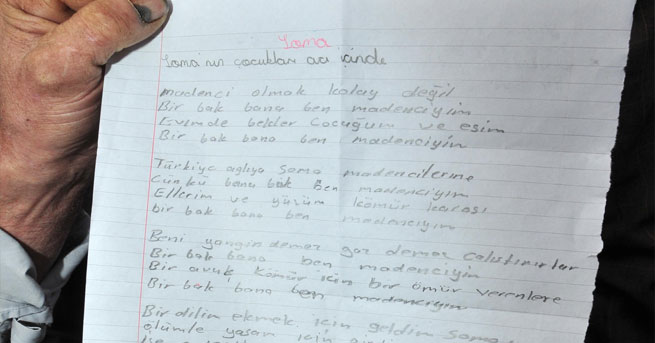 Soma
Soma'nın çocukları acı içinde
madenci olmak kolay değil
Bir bak bana ben madenciyim
Evimde bekler Çocuğum ve eşim
Bir bak bana ben madenciyim
Türkiye ağlıyo Soma madencilerine
Çünkü bana bak Ben madenciyim
Ellerim ve yüzüm kömür karası
bir bak bana ben madenciyim
Beni yangın demez gaz demez calıştırırlar
Bir bak bana ben madenciyim
Bir avuç kömür için bir ömür verenlere
Bir bak bana ben madenciyim
Bir dilim ekmek için geldim Soma
ölümle yaşam için